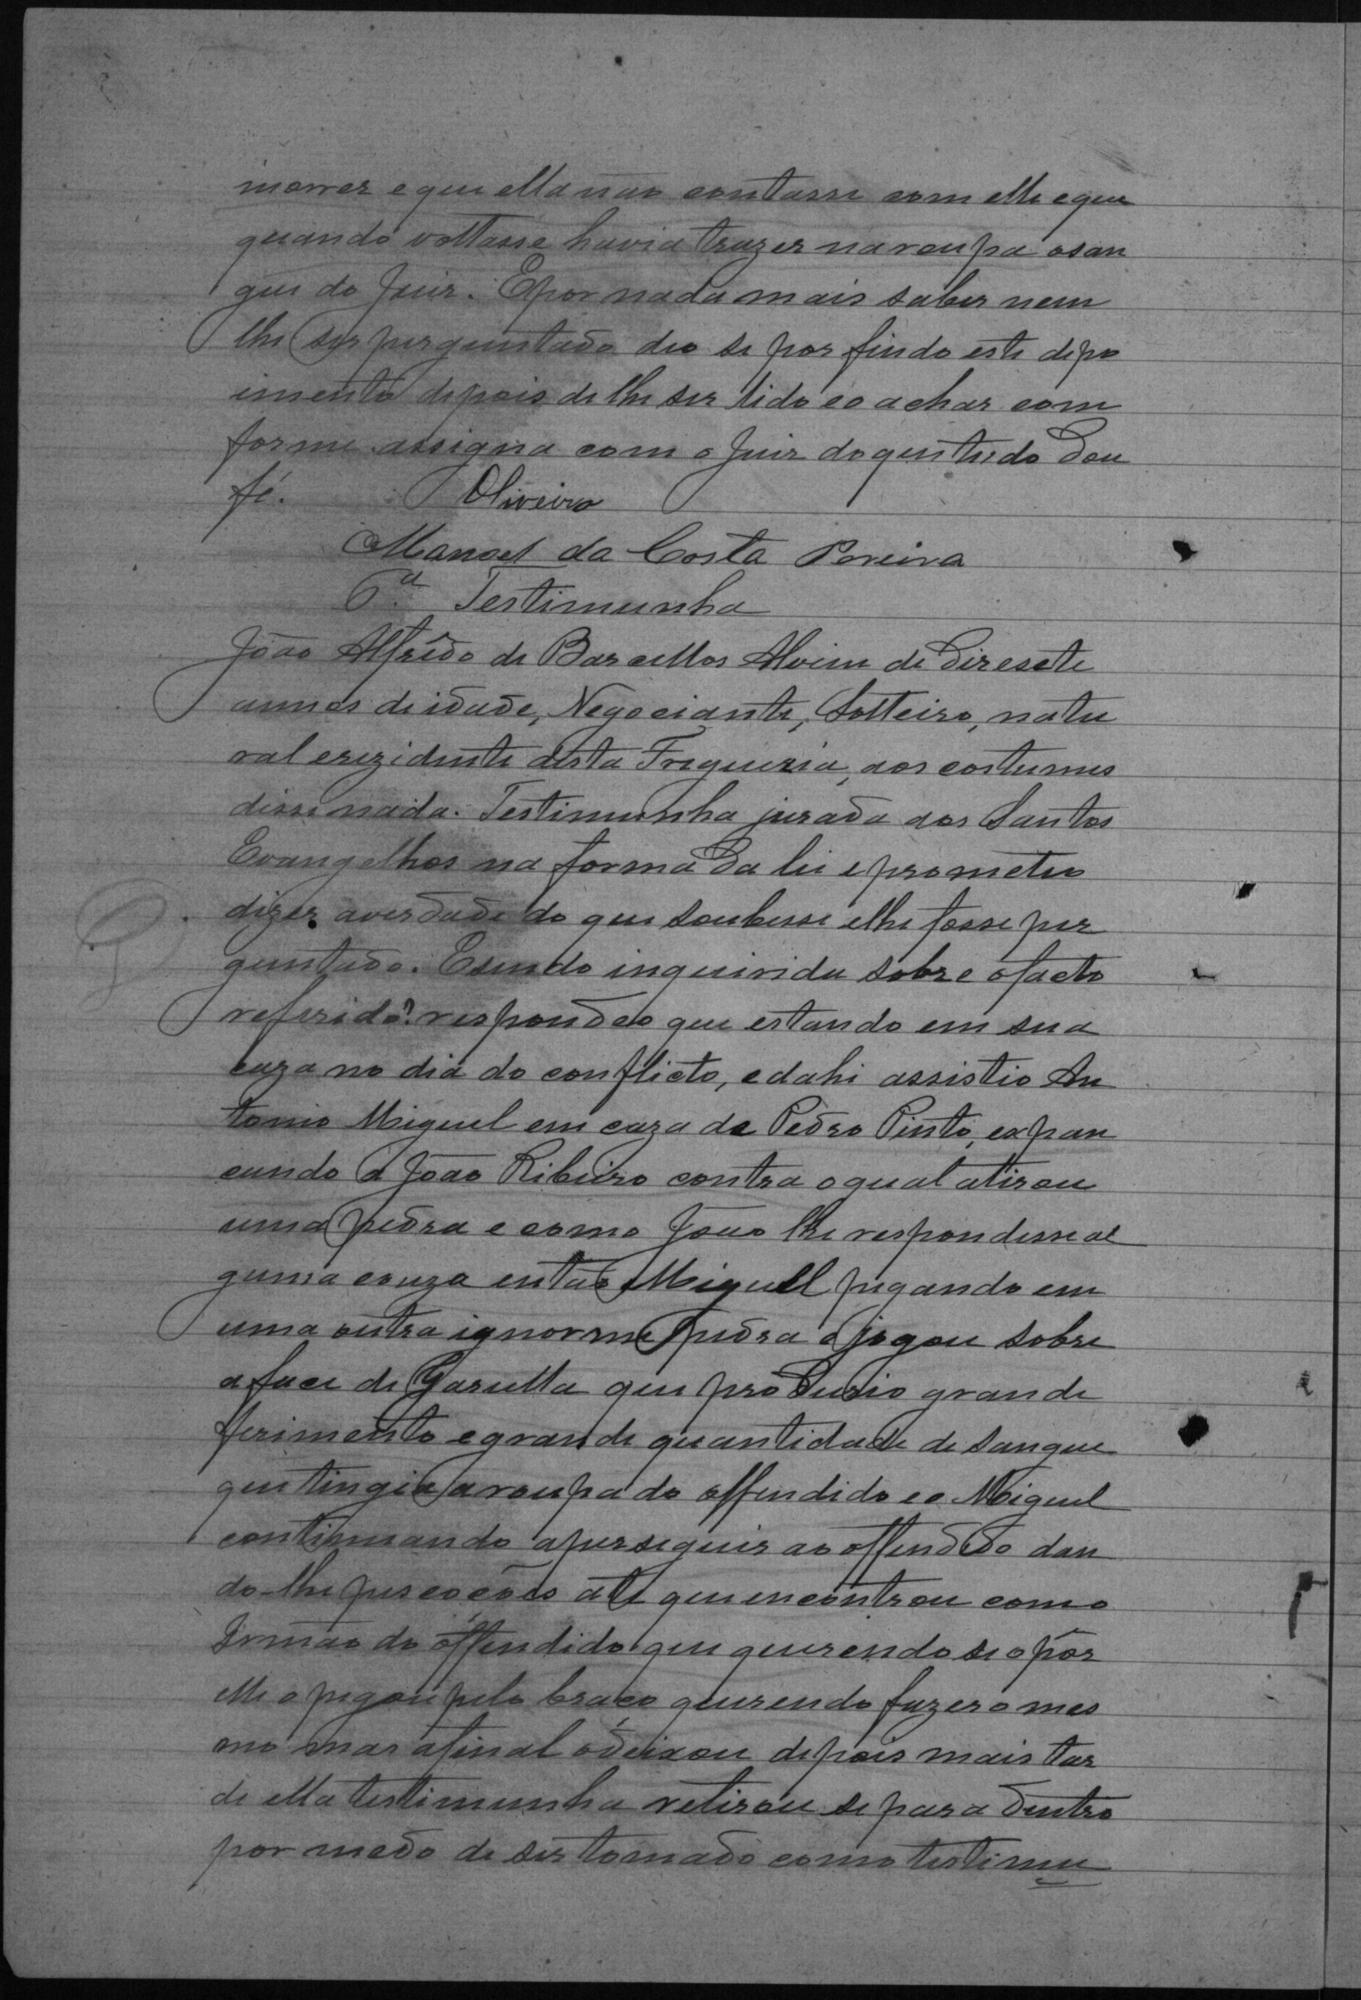 morrer e que ella não contasse com elle e que
quando voltasse havia trazer na roupa o san
gue do Juiz. E por nada mais saber nem
lhe ser perguntado deo se por findo este depo
imento depois de lhe ser lido e o achar com
forme assigna com o Juiz do que tudo dou
fé. Oliveira
Manoel da Costa Pereira
6.ª Testimunha
João Alfrêdo de Barcellos Alvim de Diresete
annos de idade, Negociante, Solteiro, natu
ral e rezidente desta Freguezia, aos costumes
disse nada. Testimunha jurada aos Santos
Evangelhos na forma da lei e prometeo
dizer a verdade do que soubesse e lhe fosse per
guntado. E sendo inquirida sobre o facto
referido? respondeo que estando em sua
caza no dia do conflicto, e dahi assistio An
tonio Miguel em caza de Pedro Pinto, espan
cando a João Ribeiro contra o qual atirou
uma pedra e como João lhe respondesse al
guma couza então Miguel pegando em
uma outra ignorme pedra a jogou sobre
a face de Garella que produzio grande
ferimento e grande quantidade de sangue
que tingia a roupa do offendido e o Miguel
continuando a perseguir ao offendido dan
do-lhe pescoções até que encontrou com o
Irmão do offendido que querendo se opôr
elle o pegou pelo braço querendo fazer o mes
mo mas afinal o deixou depois mais tar
de ella testimunha retirou se para dentro
por medo de ser tomado como testimu